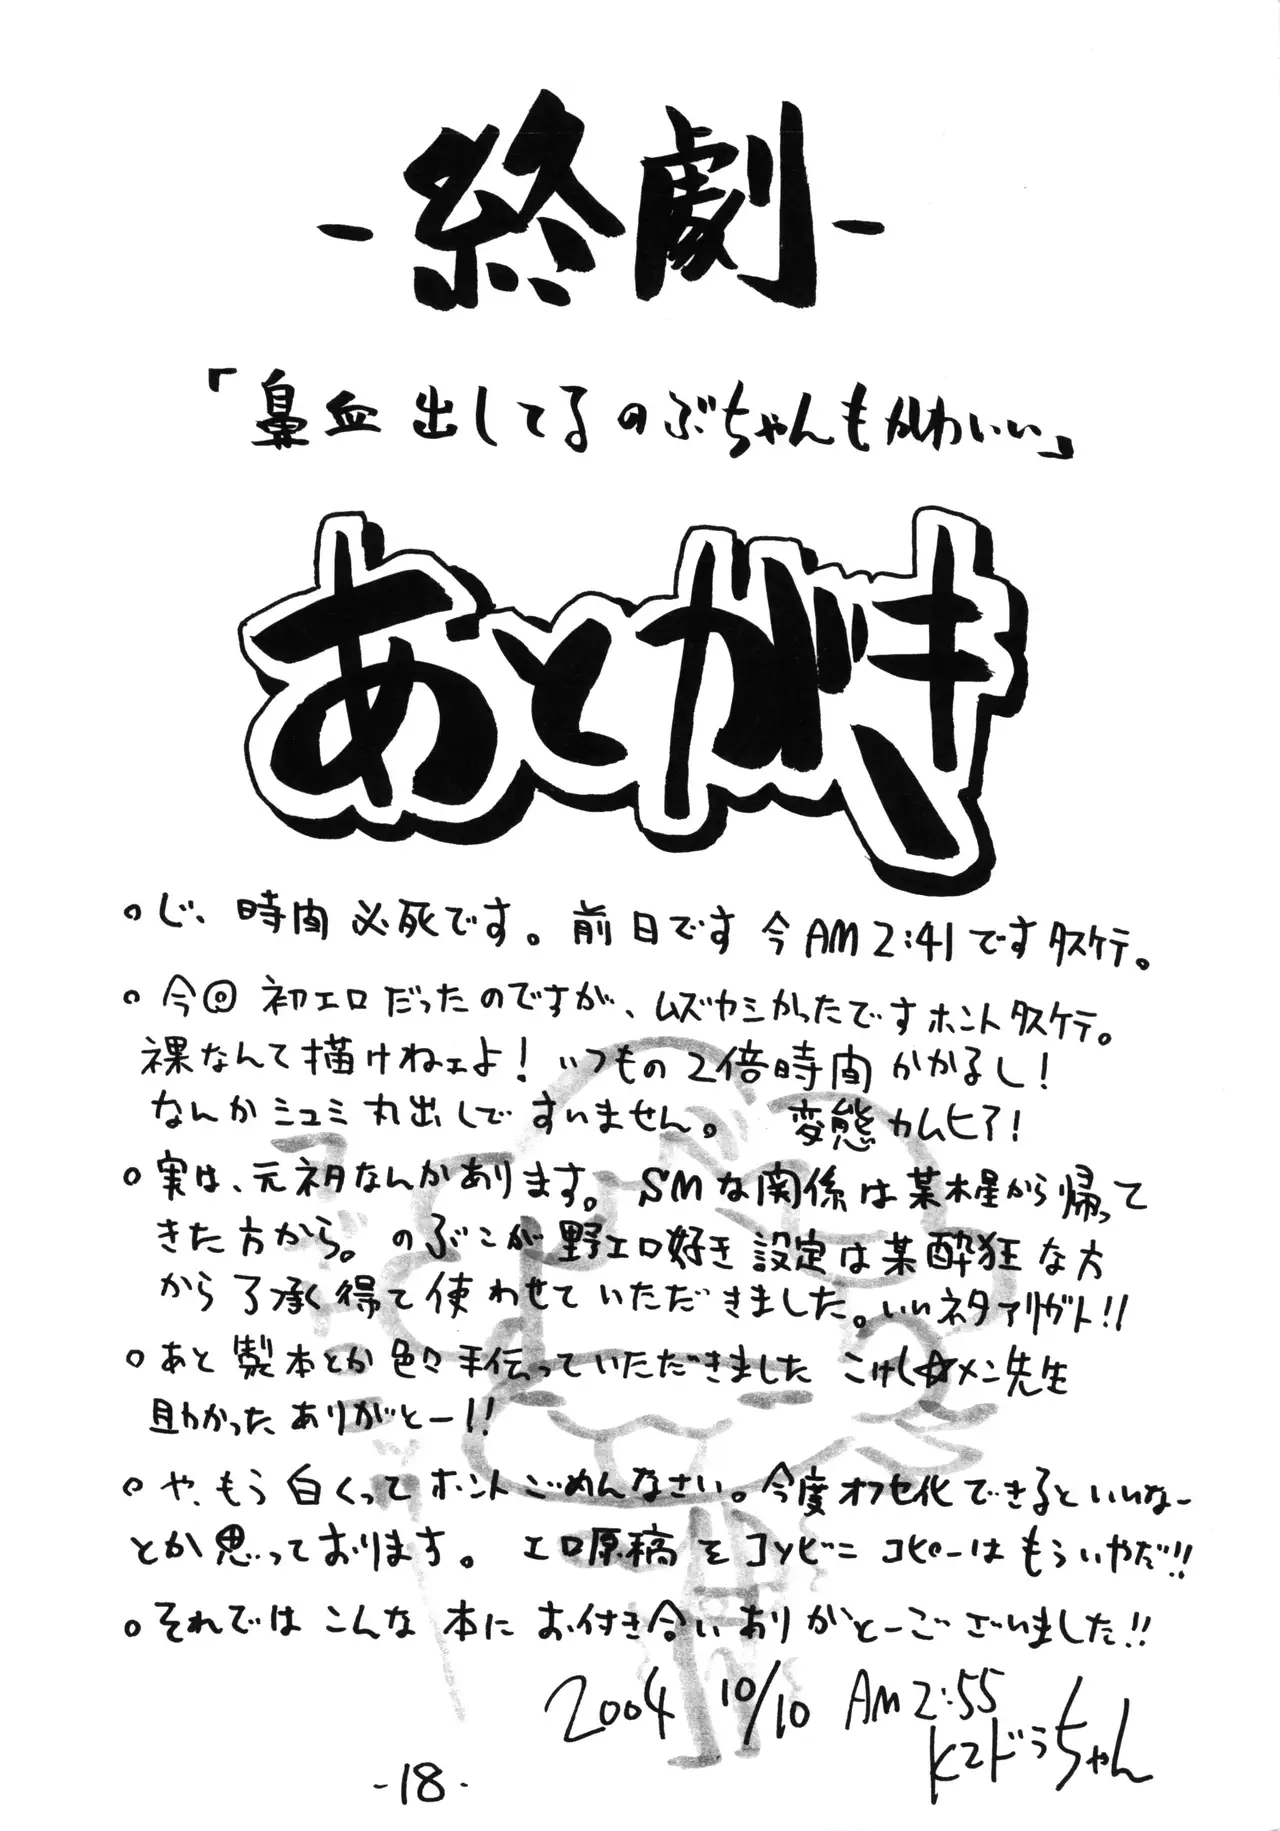 -終劇-
「鼻血出してるのぶちゃんもかわいい」
あとがき
○じ、時間必死です。前日です今AM2:41ですタスケテ。
○今回初エロだったのですが、ムズカシかったですホントタスケテ。
裸なんて描けねェよ!いつもの2倍時間かかるし!
なんかミュミ丸出しですいません。変態カムヒア!
○実は、元ネタなんかあります。SMな関係は某木星から帰って
きた方から。のぶこが野エロ好き設定は某酔狂な方
から了承得て使わせていただきました。いいネタアリガト!!
○あと製本とか色々手伝っていただきましたこけし☆メン先生
助かったありがとー!!
○や、もう白くってホントごめんなさい。今度オフセ化できるといいなー
とか思っております。エロ原稿をコンビニコピーはもういやだ!!
○それではこんな本にお付き合いありがとーございました!!
2004 10/10 AM2:55
K2ドゥちゃん
-18-